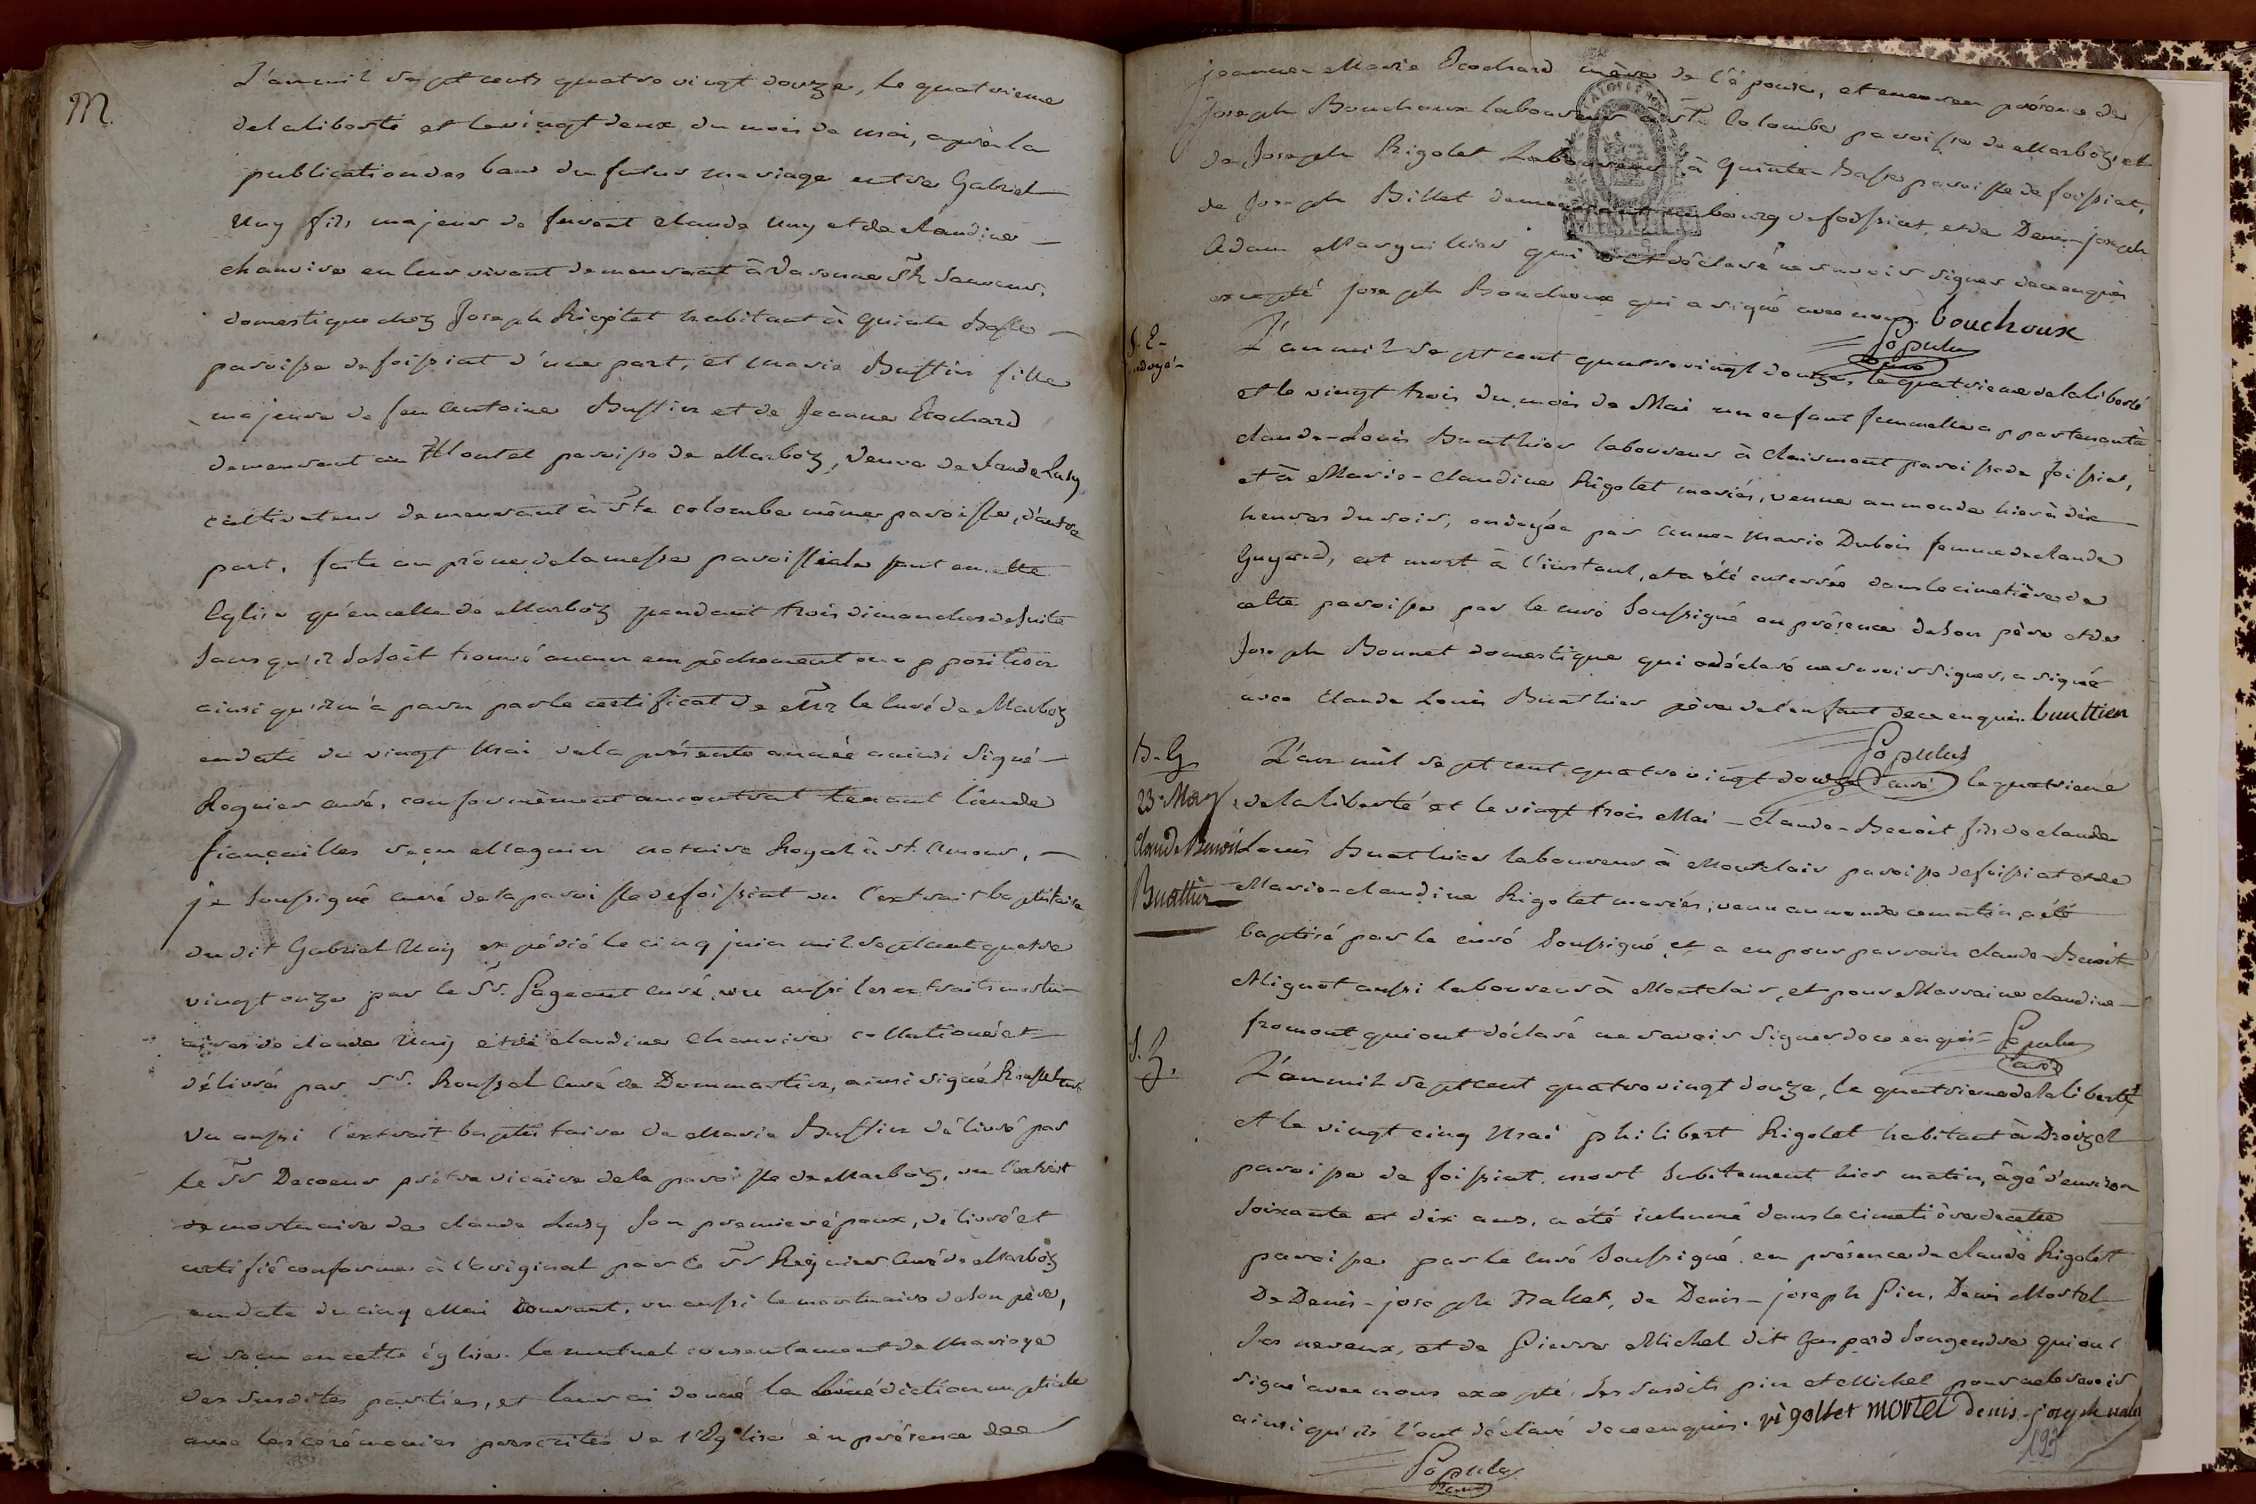 M.
L'an mil sept cents quatre vingt douze, le quatrieme
de la liberté et le vingt deux du mois de mai, après la
publication des bans du futur mariage entre Gabriel
Uny fils majeur de furont claude Uny et de claudine
chanvire en leur vivant demeurant à Varenne St Sauveur,
domestique chez Joseph Rigolet habitant à quinte Basse
paroisse de foissiat d'une part, et marie Buffin fille
majeure de feu antoine Buffin et de Jeanne Ecochard
demeurant au Montel paroisse de Marboz, veuve de claude Lusy
cultivateur demeurant à Ste colombe même paroisse, d'autre
part, faite au prône de la messe paroissiale tant en cette
Eglise qu'en celle de Marboz pendant trois dimanches de suite
sans qu'il se soit trouvé aucun empêchement ou opposition
ainsi qu'il m'a paru par le certificat de Mr le Curé de Marboz
en date du vingt Mai de la présente année ainsi signé
Reguier curé, conformèment au contrat tenant lieu de
fiançailles reçu Maguin notaire Royal à St. Amour,
je soussigné curé de la paroisse de foissiat vu l'extrait baptistaire
du dit Gabriel Uny expédié le cinq juin mil sept cent quatre
vingt onze par le Sr. Pageant curé, vu aussi les extraits mortu-
aires de claude Uny et de claudine Chanvire collationé et
délivré par Sr. Roussel Curé de Dommartin, ainsi signé Roussel curé
Vu aussi l'extrait baptistaire de Marie Buffin délivré par
le Sr Decoeur prêtre vicaire de la paroisse de Marboz, vu l'extrait
mortuaire de claude Lusy son premier époux, délivré et
certifié conforme à l'original par le Sr Reguier Curé de Marboz
en date du cinq Mai courant, vu aussi le mortuaire de son père,
ai reçu en cette église le mutuel consentement de Mariage
des susdites parties, et leur ai donné la bénédiction nuptiale
avec les cérémonies prescrites de l'Eglise en présence de
jeanne-Marie Ecochard mère de l'épouse, et encore en présence de
Joseph Bouchoux laboureur à Ste Colombe paroisse de Marboz, et
de Joseph Rigolet Laboureur à Quinte-Basse paroisse de foissiat,
de Joseph Billet demeurant au bourg de foissiat, et de Denis-joseph
Adam Marguillier qui ont déclaré ne savoir signer de ce enquis
excepté joseph Bouchoux qui a signé avec nous. bouchoux
Populus
curé
S. E-
ondoyé-
L'an mil sept cent quatre vingt douze, le quatrieme de la liberté
et le vingt trois du mois de Mai un enfant femmelle appartenant à
claude-Louis Buathier laboureur à Clairmont paroisse de foissiat,
et à Marie-Claudine Rigolet mariés, venue au monde hier à dix
heures du soir, ondoyée par Anne-Marie Dubois femme de claude
Guyard, est mort à l'instant, et a été enterrée dans le cimetière de
cette paroisse par le curé soussigné en présence de son père et de
Joseph Bonnet domestique qui a déclaré ne savoir signer, a signé
avec Claude Louis Buathier père de l'enfant de ce enquis. buattier
Populus
curé
B. G.
23. May
Claude Benoit
Buattier
L'an mil sept cent quatre vingt douze le quatrieme
de la liberté et le vingt trois Mai Claude-Benoit fils de claude
Louis Buathier laboureur à Montclair paroisse de foissiat et de
Marie-claudine Rigolet mariés, venu au monde ce matin, a été
baptisé par le curé soussigné et a eu pour parrain claude-Benoit
Mignot aussi laboureur à Montclair, et pour Marraine claudine
fromont qui ont déclaré ne savoir signer de ce enquis Populus
curé
S. G.
L'an mil sept cent quatre vingt douze, le quatrieme de la liberté
et le vingt cinq Mai philibert Rigolet habitant à Droizel
paroisse de foissiat, mort subitement hier matin, âgé d'environ
soixante et dix ans, a été inhumé dans le cimetière de cette
paroisse par le curé soussigné en présence de claude Rigolet
De Denis-joseph Nallet, de Denis-joseph Pin, Denis Mortel
ses neveux, et de Pierre Michel dit Gaspard son gendre qui ont
signé avec nous excepté les susdits pin et Michel pour ne le savoir
ainsi qu'ils l'ont déclaré de ce enquis. rigollet mortel denis-joseph nalet
Populus
curé
192